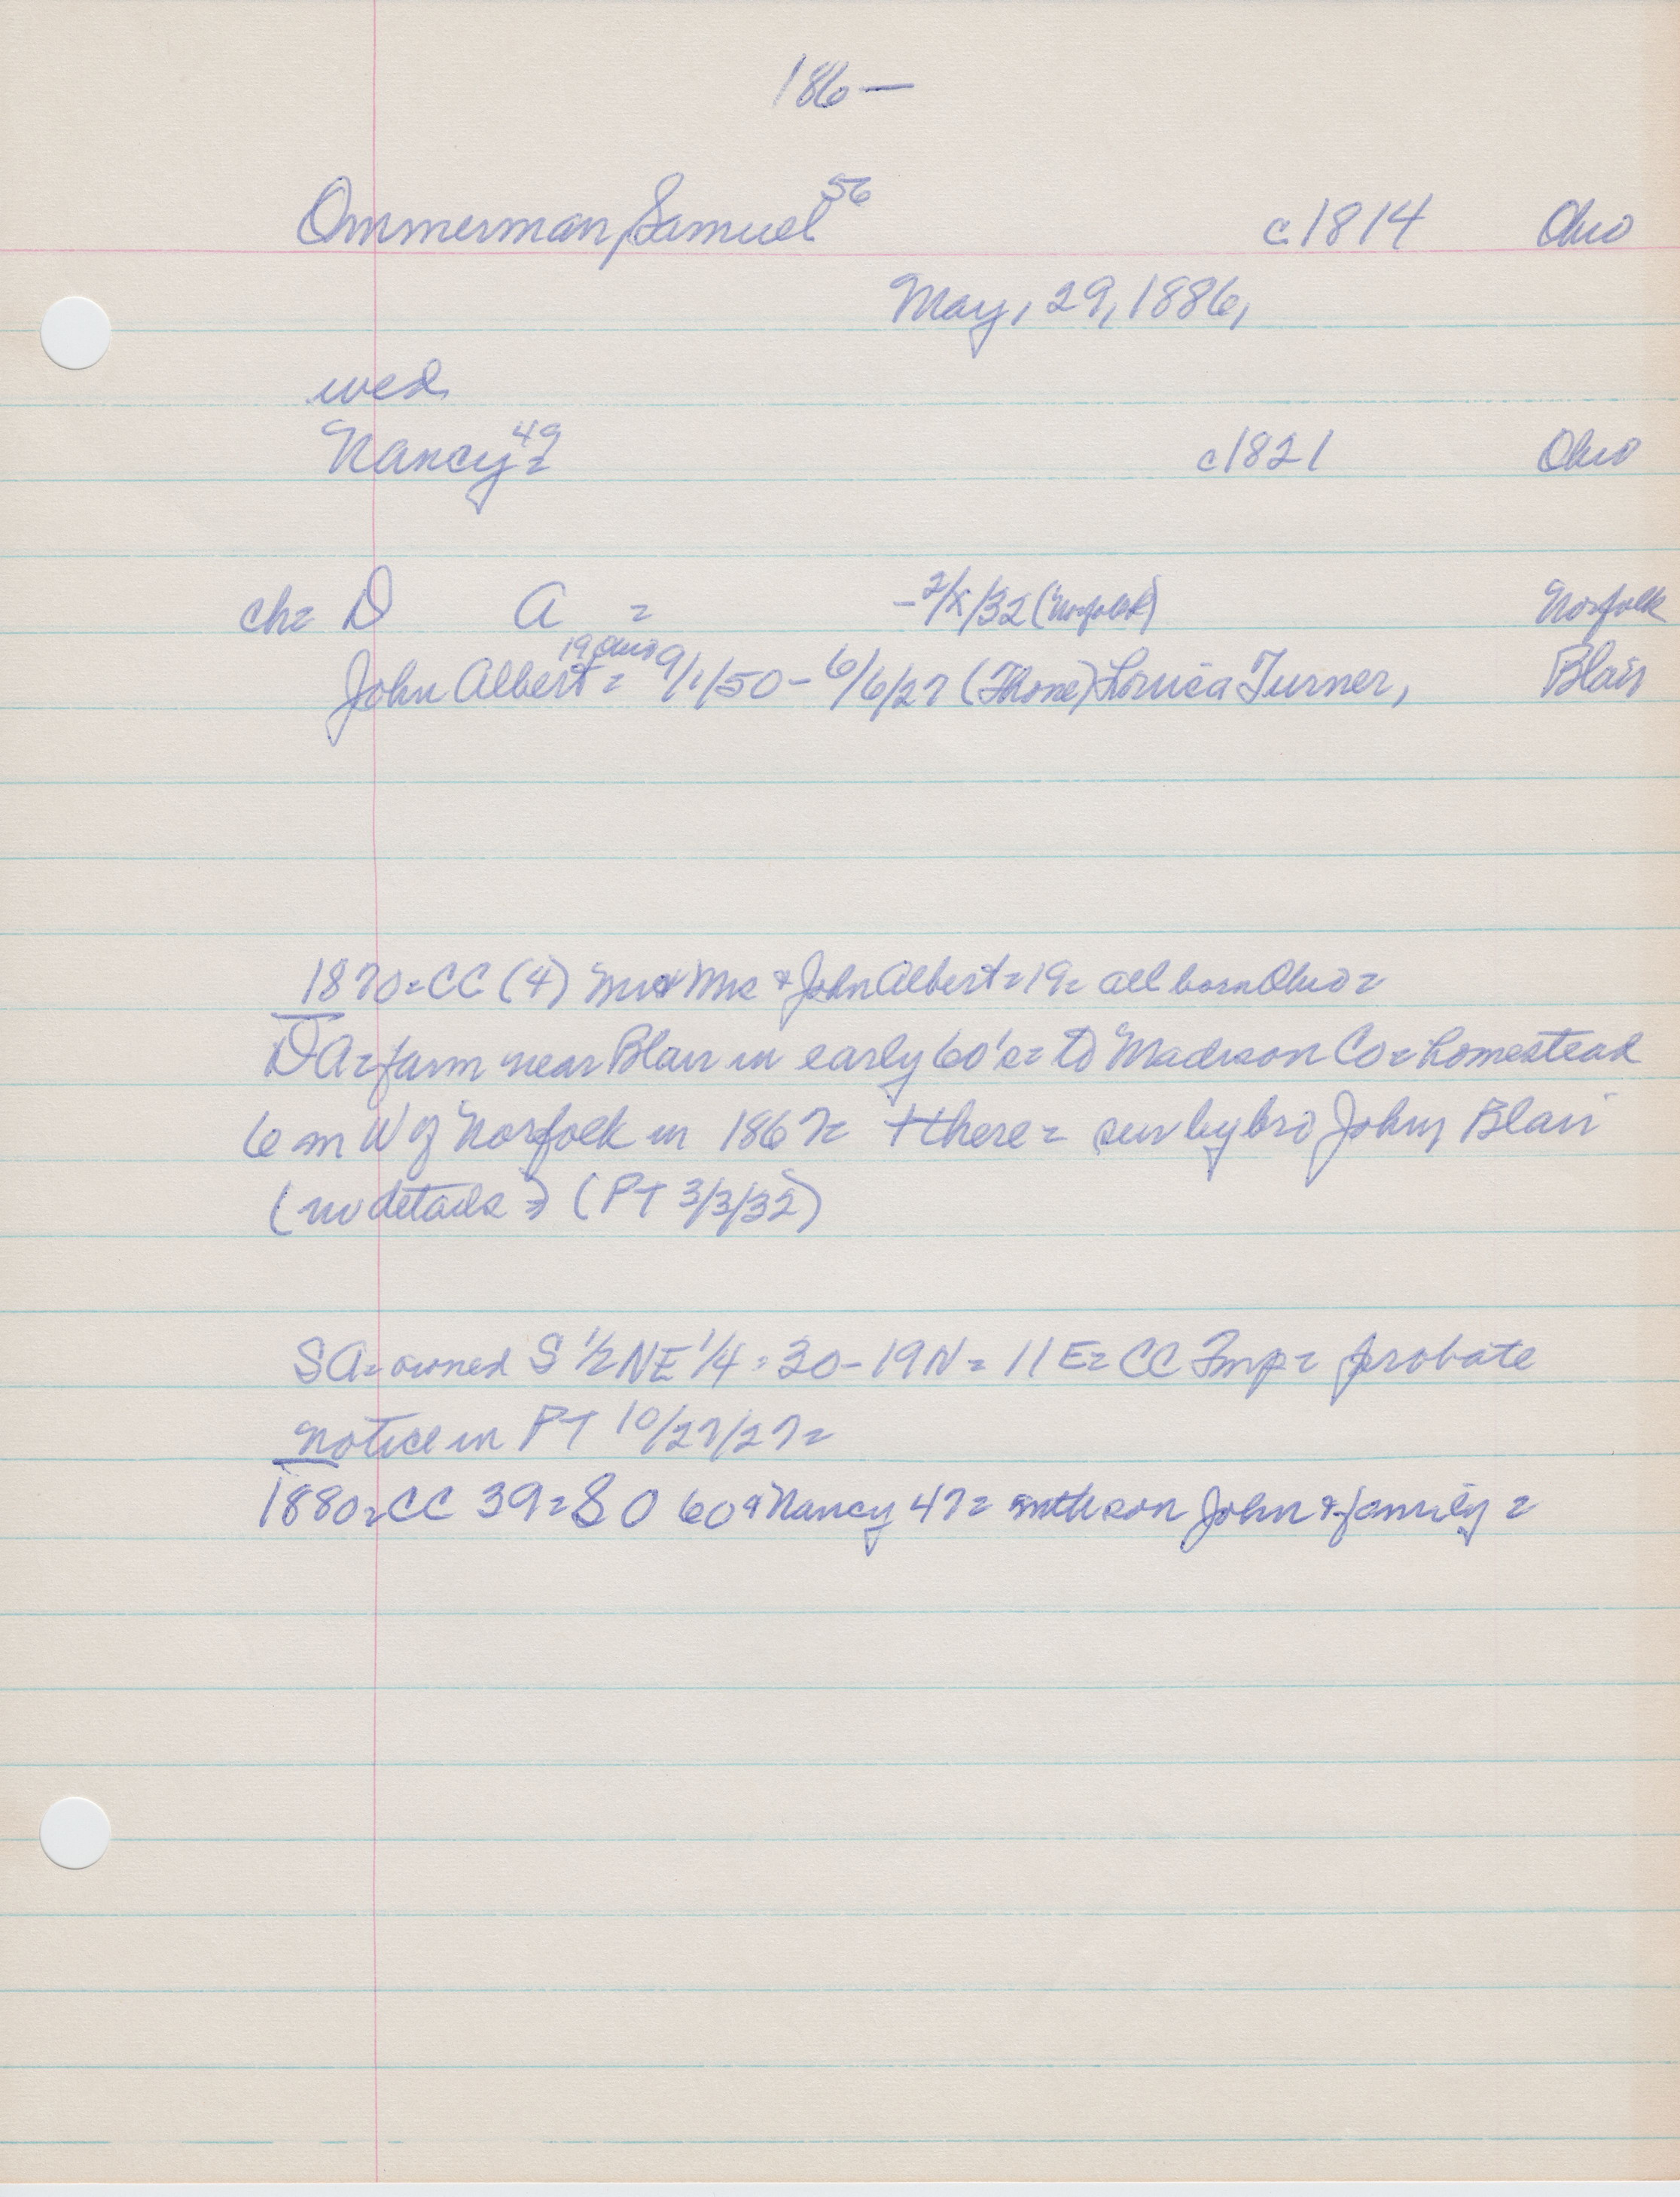 186—
Ommerman, Samuel 56 c 1814 Ohio
May, 29, 1886,
wed
Nancy 49 = c 1821 Ohio
ch= D A = -2/x/32 (Norfolk) Norfolk
19 Ohio
John Albert = 9/1/50 - 6/6/27 (Thone) Louisa Turner, Blair
1870 = CC (4) Mr & Mrs & John Albert = 19 = all born Ohio =
DA = farm near Blair in early 60's = to Madison Co = homestead
6 m W of Norfolk in 1867 = + there = sur by bro John, Blair
(no details =) (PT 3/3/32)
SA = owned S 1/2 NE 1/4 = 30 - 19N = 11 E = CC Tmp = probate
notice in PT 10/27/27 =
1880 = CC 39 = SO 60 & Nancy 47 = with son John & family =